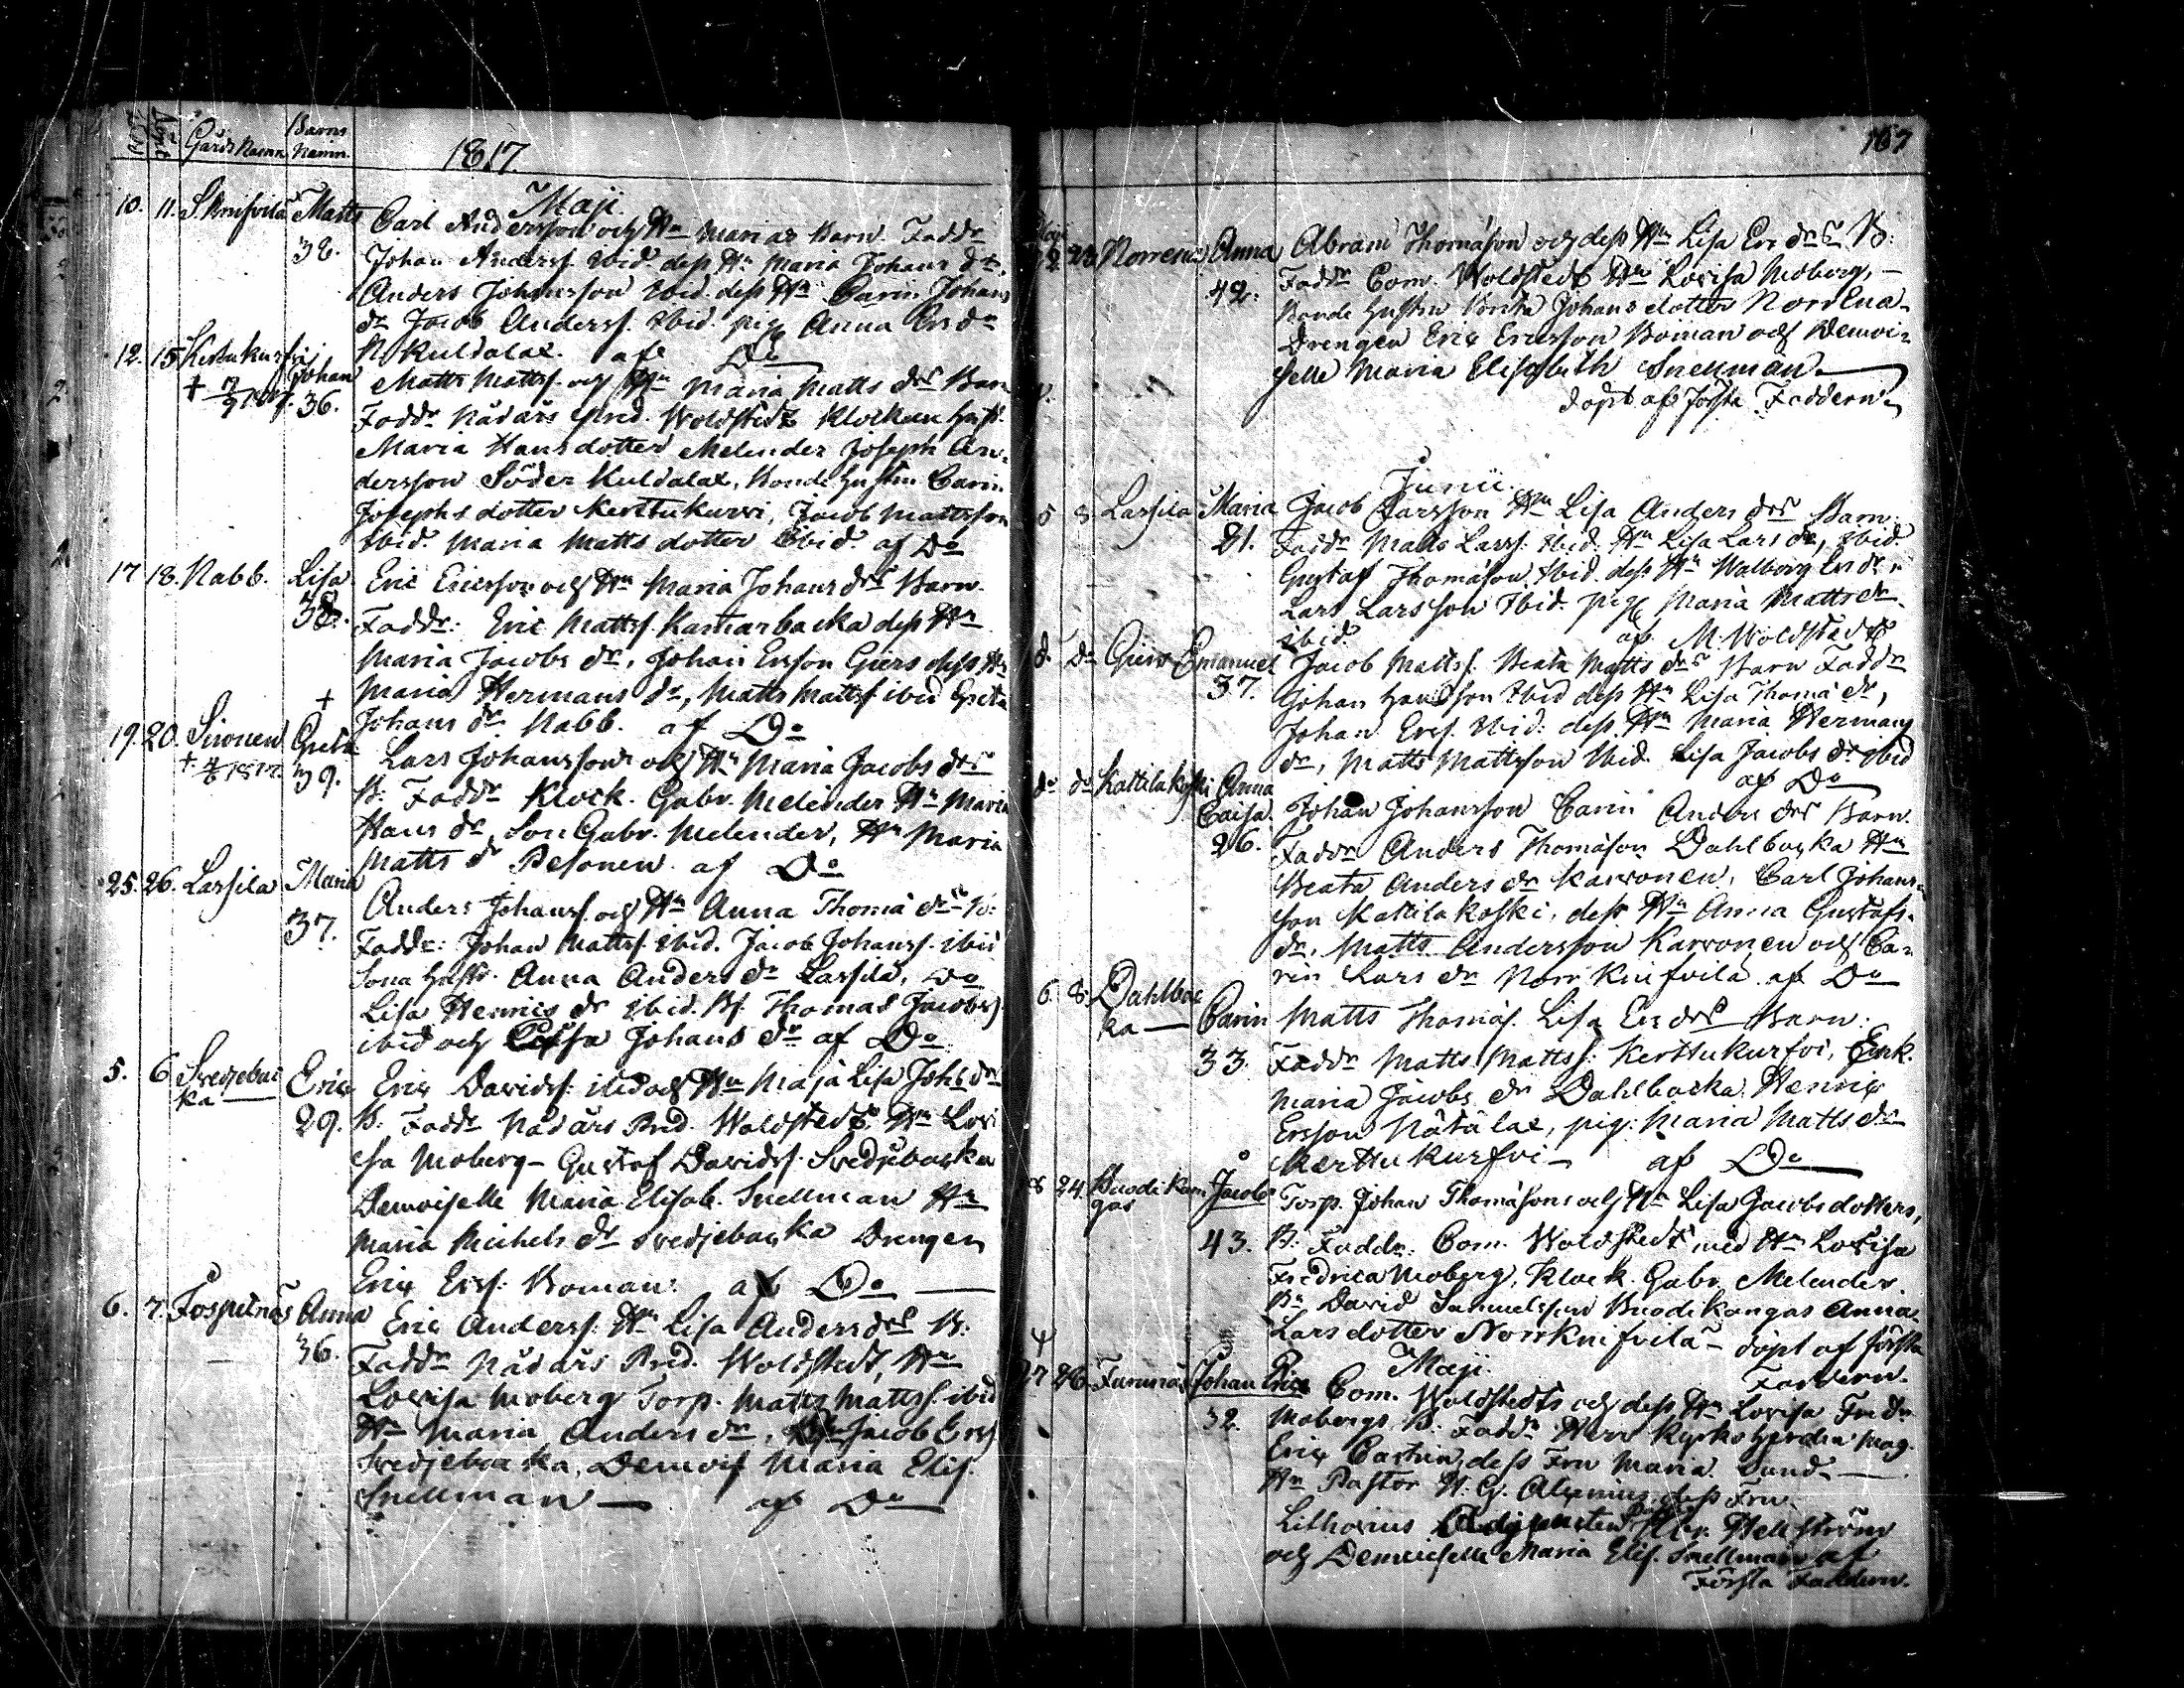 Född Döpt Gårds Namn Barns Namn 1817.
Maji
10. 11. S. Knifvila Matts 38. Carl Andersson och Hu Marias Barn. Faddr
Johan Anderss. ibid. dess Hu Maria Johans dr
Anders Johansson ibid. dess Hu Carin Johans
dr Jacob Anderss. ibid. pig. Anna Ers dr
N. Kuldalax. af Do
12. 15 Kerttukurfvi Johan 36. Matts Mattss. och Hu Maria Matts drs Barn
Faddr Nådårs Pred. Woldstedt Klockaren Hust.
Maria Hansdotter Melender Joseph An-
dersson Söder Kuldalax, Bonde Hustru Carin
Josephs dotter Kerttukurvi, Jacob Mattsson
ibid. Maria Matts dotter ibid. af Do
17 18. Nabb. Lisa 38. Eric Ericsson och Hu Maria Johans drs Barn.
Faddr: Eric Mattss. Kamarbacka dess Hu
Maria Jacobs dr, Johan Ersson Giers dess Hu
Maria Hermans dr, Matts Mattss ibid Greta
Johans dr Nabb. af Do
19. 20. Sironen + Greta 39. Lars Johanssons och Hu Maria Jacobs drs
B: Faddr Klock. Gabr. Melender Hu Maria
Hans dr, Son Gabr. Melender, Hu Maria
Matts dr Pesonen. af Do
25. 26. Lassila Maria 37. Anders Johanss. och Hu Anna Thomæ drs B:
Faddr: Johan Mattss. ibid. Jacob Johanss. ibid
Sona Hustr. Anna Anders dr Lassila, Do
Lisa Henrics dr ibid. Thomas Jacobss
ibid och Johans dr af Do
5. 6 Svedjebac ka Eric 29. Eric Davidss. ibid och Hu Maja Lisa Johs drs
B. Faddr Nådårs Pred. Woldstedt Hu Lovi
sa Moberg - Gustaf Davidss. Svedjebacka
Demoiselle Maria Elisab. Snellman Hu
Maria Michels dr Svedjebacka Drengen
Eric Erss. Boman. af Do
6. 7. Fospitnäs Anna 36. Eric Anderss. Hu Lisa Anders drs B.
Faddr Nådårs Pred. Woldstedt, Hu
Lovisa Moberg Torp. Matts Mattss. ibid
Hu Maria Anders dr, Jacob Erss
Svedjebacka, Demois Maria Elis.
Snellman af Do
167
22. 23. Norrena Anna 42. Abram Thomasson och dess Hu Lisa Ers drs B:
Faddr Com. Woldstedt Hu Lovisa Moberg, -
Bonde Hustru Brita Johans dotter NordEna-
Drengen Eric Ericsson Boman och Demoi-
selle Maria Elisabeth Snellman
döpt af första Faddern
Junii
5 8 Lassila Maria 21. Jacob Larsson Hu Lisa Anders drs Barn.
Faddr Matts Larss. ibid. Hu Lisa Lars dr, ibid.
Gustaf Thomasson ibid. dess Hu Walborg Ers dr
Lars Larsson ibid. pig. Maria Matts dr
ibid. af M. Woldstedt
d. Do Giers Emanuel 37. Jacob Mattss. Beata Matts drs Barn Faddr
Johan Hansson ibid dess Hu Lisa Thomæ dr,
Johan Erss. ibid: dess Hu Maria Hermans
dr, Matts Mattsson ibid. Lisa Jacobs dr ibid
af Do
do do Kattilakoski Anna Caisa. 26. Johan Johansson Carin Anders drs Barn.
Faddr Anders Thomasson Dahlbacka Hu
Beata Anders dr Karvonen, Carl Johans-
son Kattilakoski, dess Hu Anna Gustafs-
dr, Matts Andersson Karvonen och Ca-
rin Lars dr Norr Knifvila af Do
6. 8. Dahlbac ka Carin 33. Matts Thomas. Lisa Ers drs Barn.
Faddr Matts Mattss. Kerttukurfvi, Enk.
Maria Jacobs dr Dahlbacka. Henric
Ersson Nätälax, pig. Maria Matts dr
Kerttukurfvi - af Do
24. Buodikan gas Jacob 43. Torp. Johan Thomassons och Hu Lisa Jacobs dotters,
B. Faddr. Com. Woldstedt med Hu Lovisa
Fredrica Moberg, Klock. Gabr. Melender
Bn David Samuelsson Buodikangas Anna
Lars dotter Norrknifvila - döpt af första
Faddern.
Maji
27 28. Furunäs Johan Eric 32. Com. Woldstedts och dess Hu Lovisa Fredr
Mobergs B. Faddr Herr Kyrkoherden Mag.
Eric Castrén, dess Fru Maria. Sund-
Hr Pastor H. G. Alcenius, dess Fru
Lithovius Adjuncten Hellström
och Demoiselle Maria Elis. Snellman af
Första Faddern.